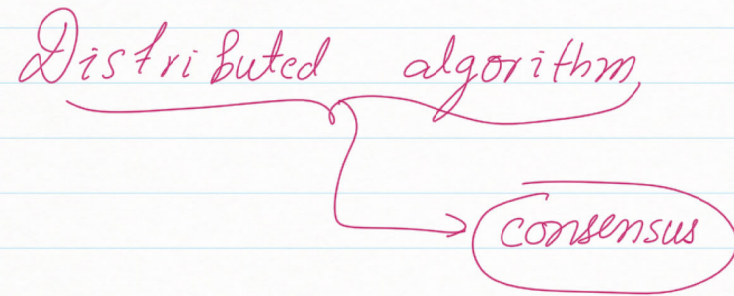 Distributed algorithm
consensus